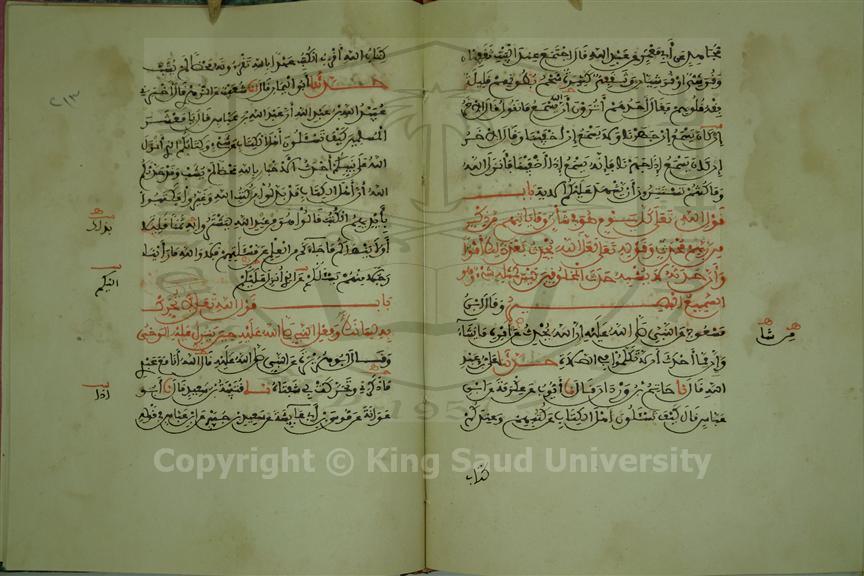 مجاهد عن أبي معمر عن عبد الله قال اجتمع عند البيت ثقفيان
وقرشي أو قرشيان وثقفي كثيرة شحم بطونهم قليلة
فقه قلوبهم فقال أحدهم أترون أن الله يسمع ما نقول قال الآخر
إن كان يسمع إن جهرنا ولا يسمع إن أخفينا وقال الآخر
إن كان يسمع إذا جهرنا فإنه يسمع إذا أخفينا فأنزل الله
وما كنتم تستترون أن يشهد عليكم الاية باب
قول الله تعلى كل يوم هو في شأن وما ياتيهم من ذكر
من ربهم محدث وقوله تعلى لعل الله يحدث بعد ذلك أمرا
وأن حدثه لا يشبه حدث المخلوقين ليس كمثله شيء وهو
السميع البصير وقال ابن
مسعود عن النبي صلى الله عليه إن الله يحدث من أمره ما يشاء
وإن مما أحدث أن لا تكلموا في الصلاة حدثنا علي بن عبد
الله قال نا حاتم بن وردان قال نا أيوب عن عكرمة عن ابن
عباس قال كيف تسئلون أهل الكتاب عن كتبهم وعندكم
كتاب
كتاب الله أقرب الكتب عهدا بالله تقرءونه محضا لم يشب
حدثنا أبو اليمان قال أنا شعيب عن الزهري قال أخبرني
عبيد الله بن عبد الله أن عبد الله بن عباس قال يا معشر
المسلمين كيف تسئلون أهل الكتاب عن شيء وكتابكم الذي أنزل
الله على نبيكم أحدث الأخبار بالله محضا لم يشب وقد حدثكم
الله أن أهل الكتاب قد بدلوا من كتب الله وغيروا فكتبوا
بأيديهم الكتب قالوا هو من عند الله ليشتروا به ثمنا قليلا
أولا ينهاكم ما جاءكم من العلم عن مسئلتهم فلا والله ما رأينا
رجلا منهم يسئلكم عن الذي أنزل عليكم
باب قول الله تعلى لا تحرك
به لسانك وفعل النبي صلى الله عليه حين ينزل عليه الوحي
وقال أبو هريرة عن النبي صلى الله عليه قال الله أنا مع عبدي
ما ذكرني وتحركت بي شفتاه نا قتيبة بن سعيد قال نا أبو
عوانة عن موسى بن أبي عايشة عن سعيد بن جبير عن ابن عباس في قوله
إليكم
إذا
٢١٣
Copyright © King Saud University
1957